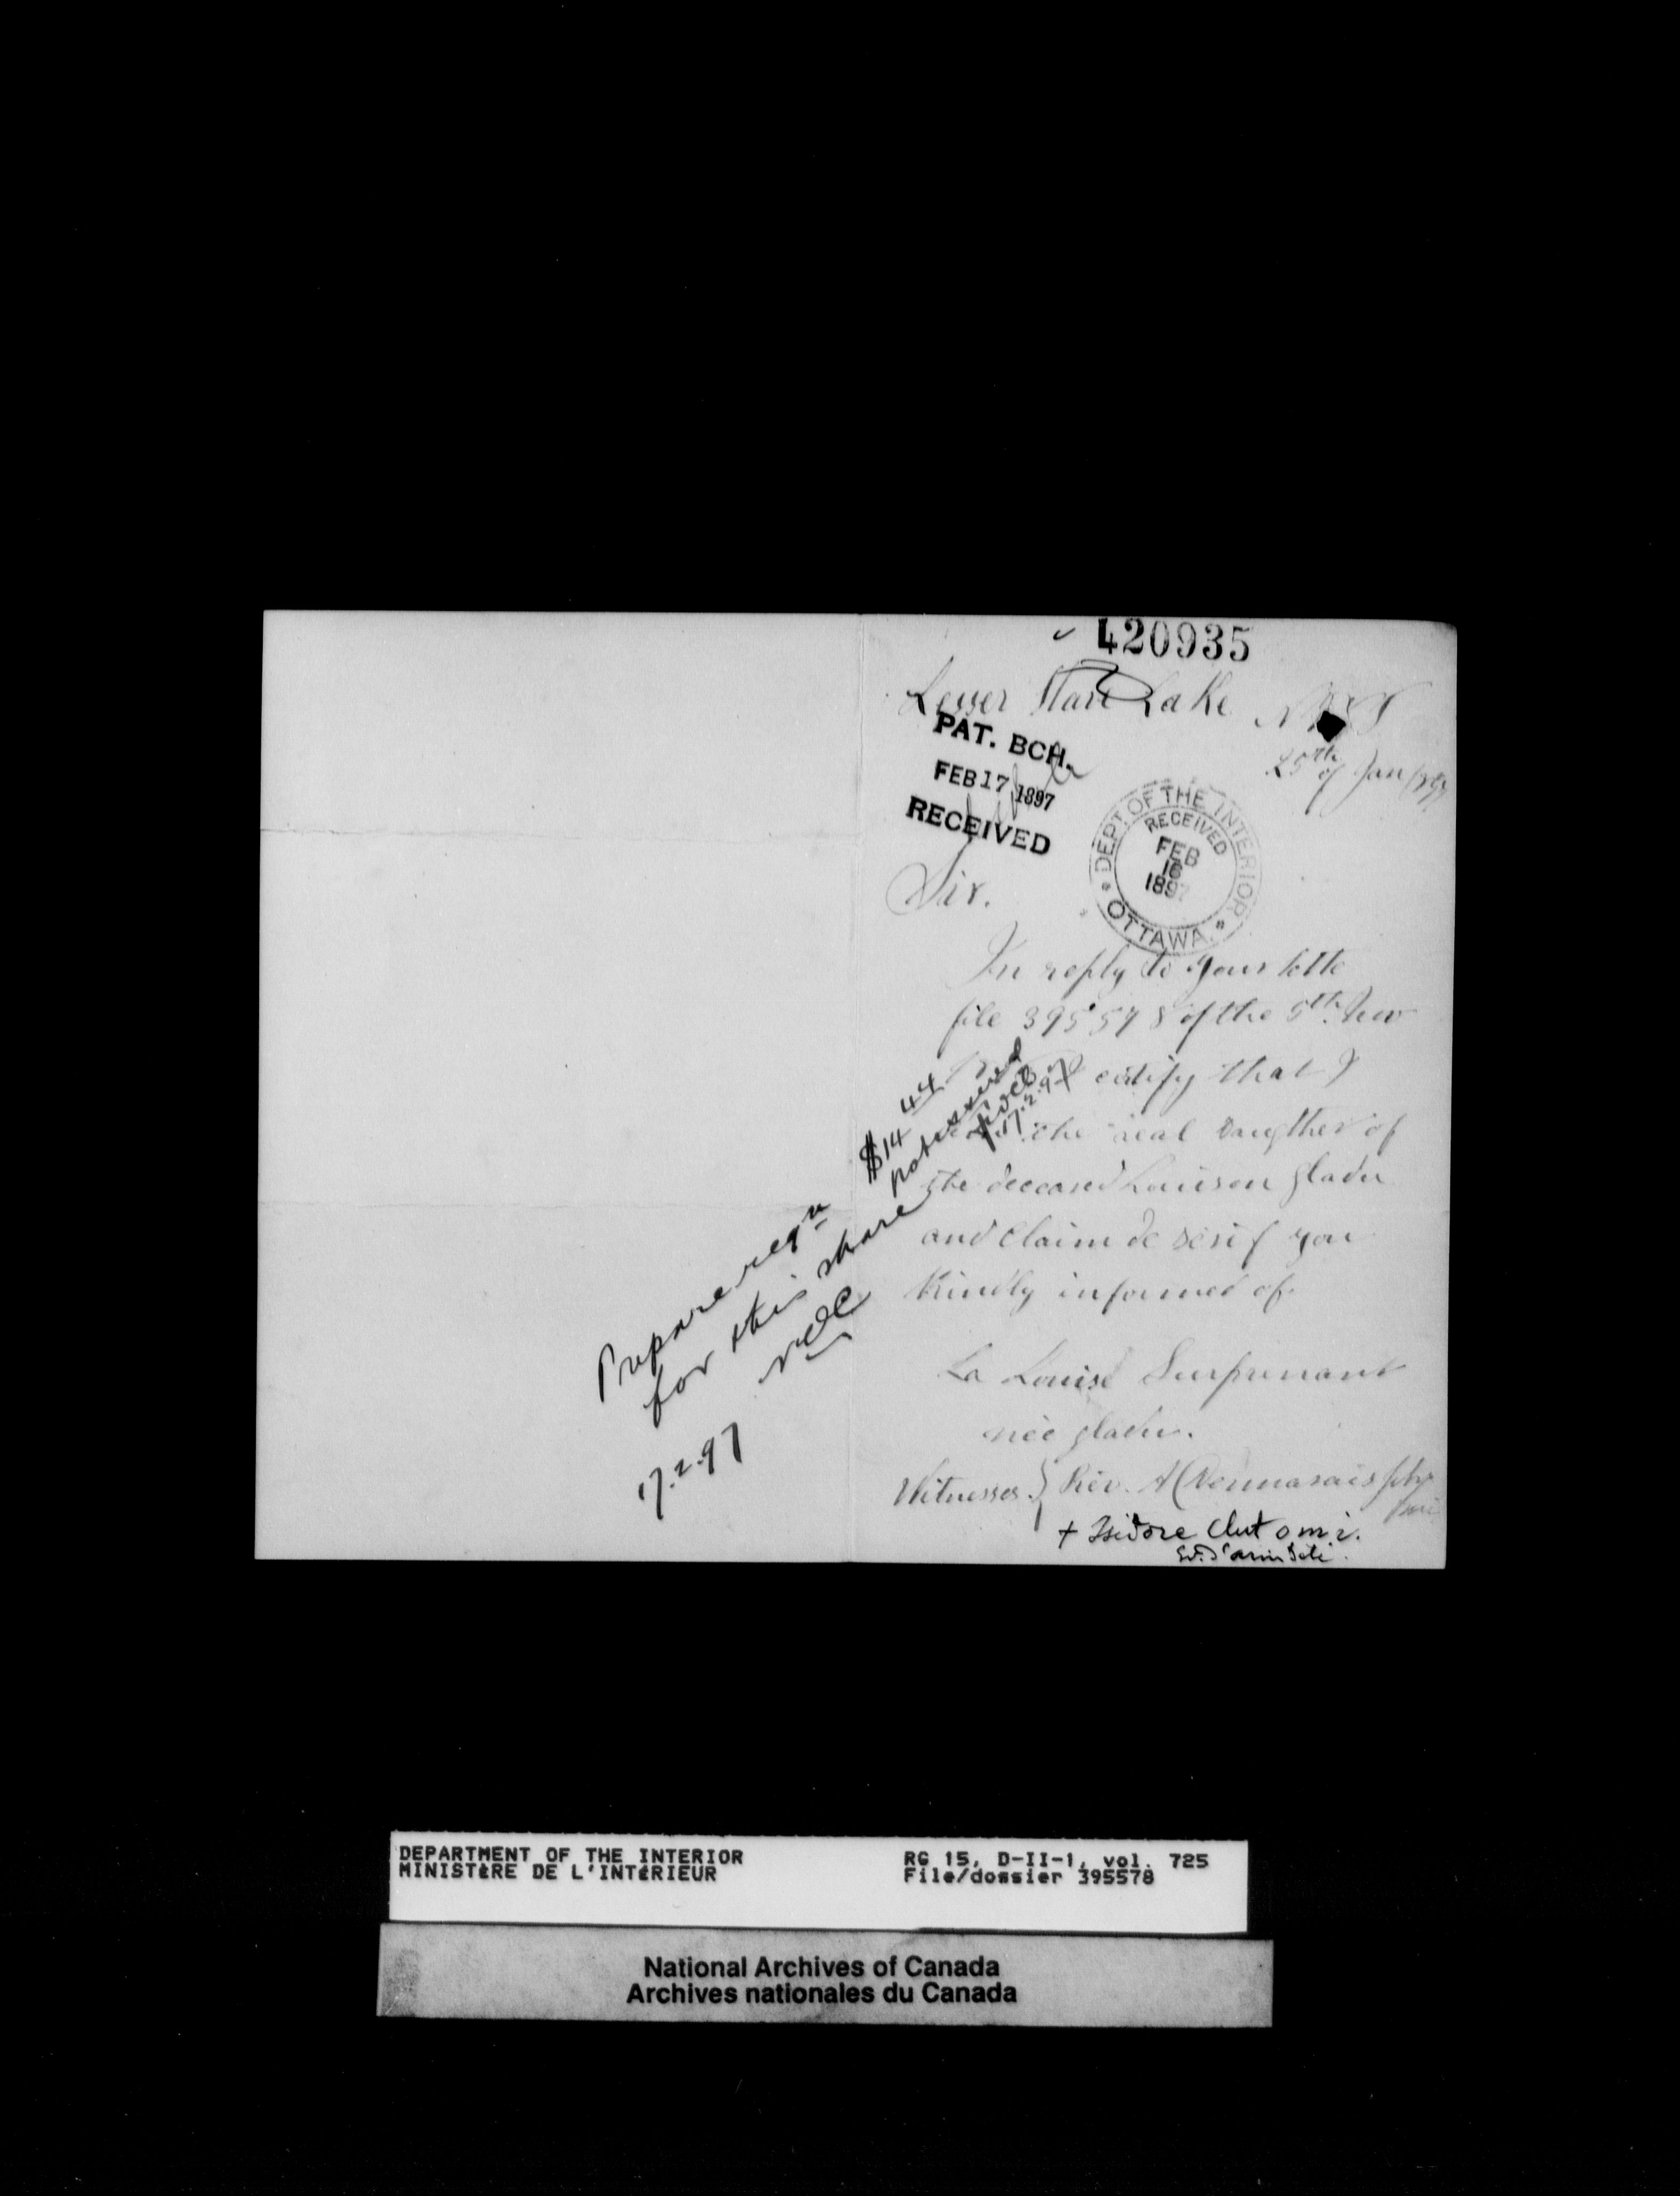 420935
Lesser Slave Lake N.W.T
25th of Jan 1897
PAT. BCH.
FEB 17 1897
RECEIVED
DEPT. OF THE INTERIOR
RECEIVED
FEB
16
1897
OTTAWA.
Sir.
In reply to your lette
file 395578 of the 5th. Nov
I certify that I
the real daugther of
the deceased Louison gladu
and claim de
Kindly informed of.
La Louise Surprenant
née gladu.
Witnesses. } Rev. A Desmarais
+ Isidore Clut o m. i.
Ev. d'arindele.
$14 44
17.2.97
Prepare reqn
for this share
17.2.97
DEPARTMENT OF THE INTERIOR
MINISTÈRE DE L'INTÉRIEUR
RG 15, D-II-1, vol. 725
File/dossier 395578
National Archives of Canada
Archives nationales du Canada